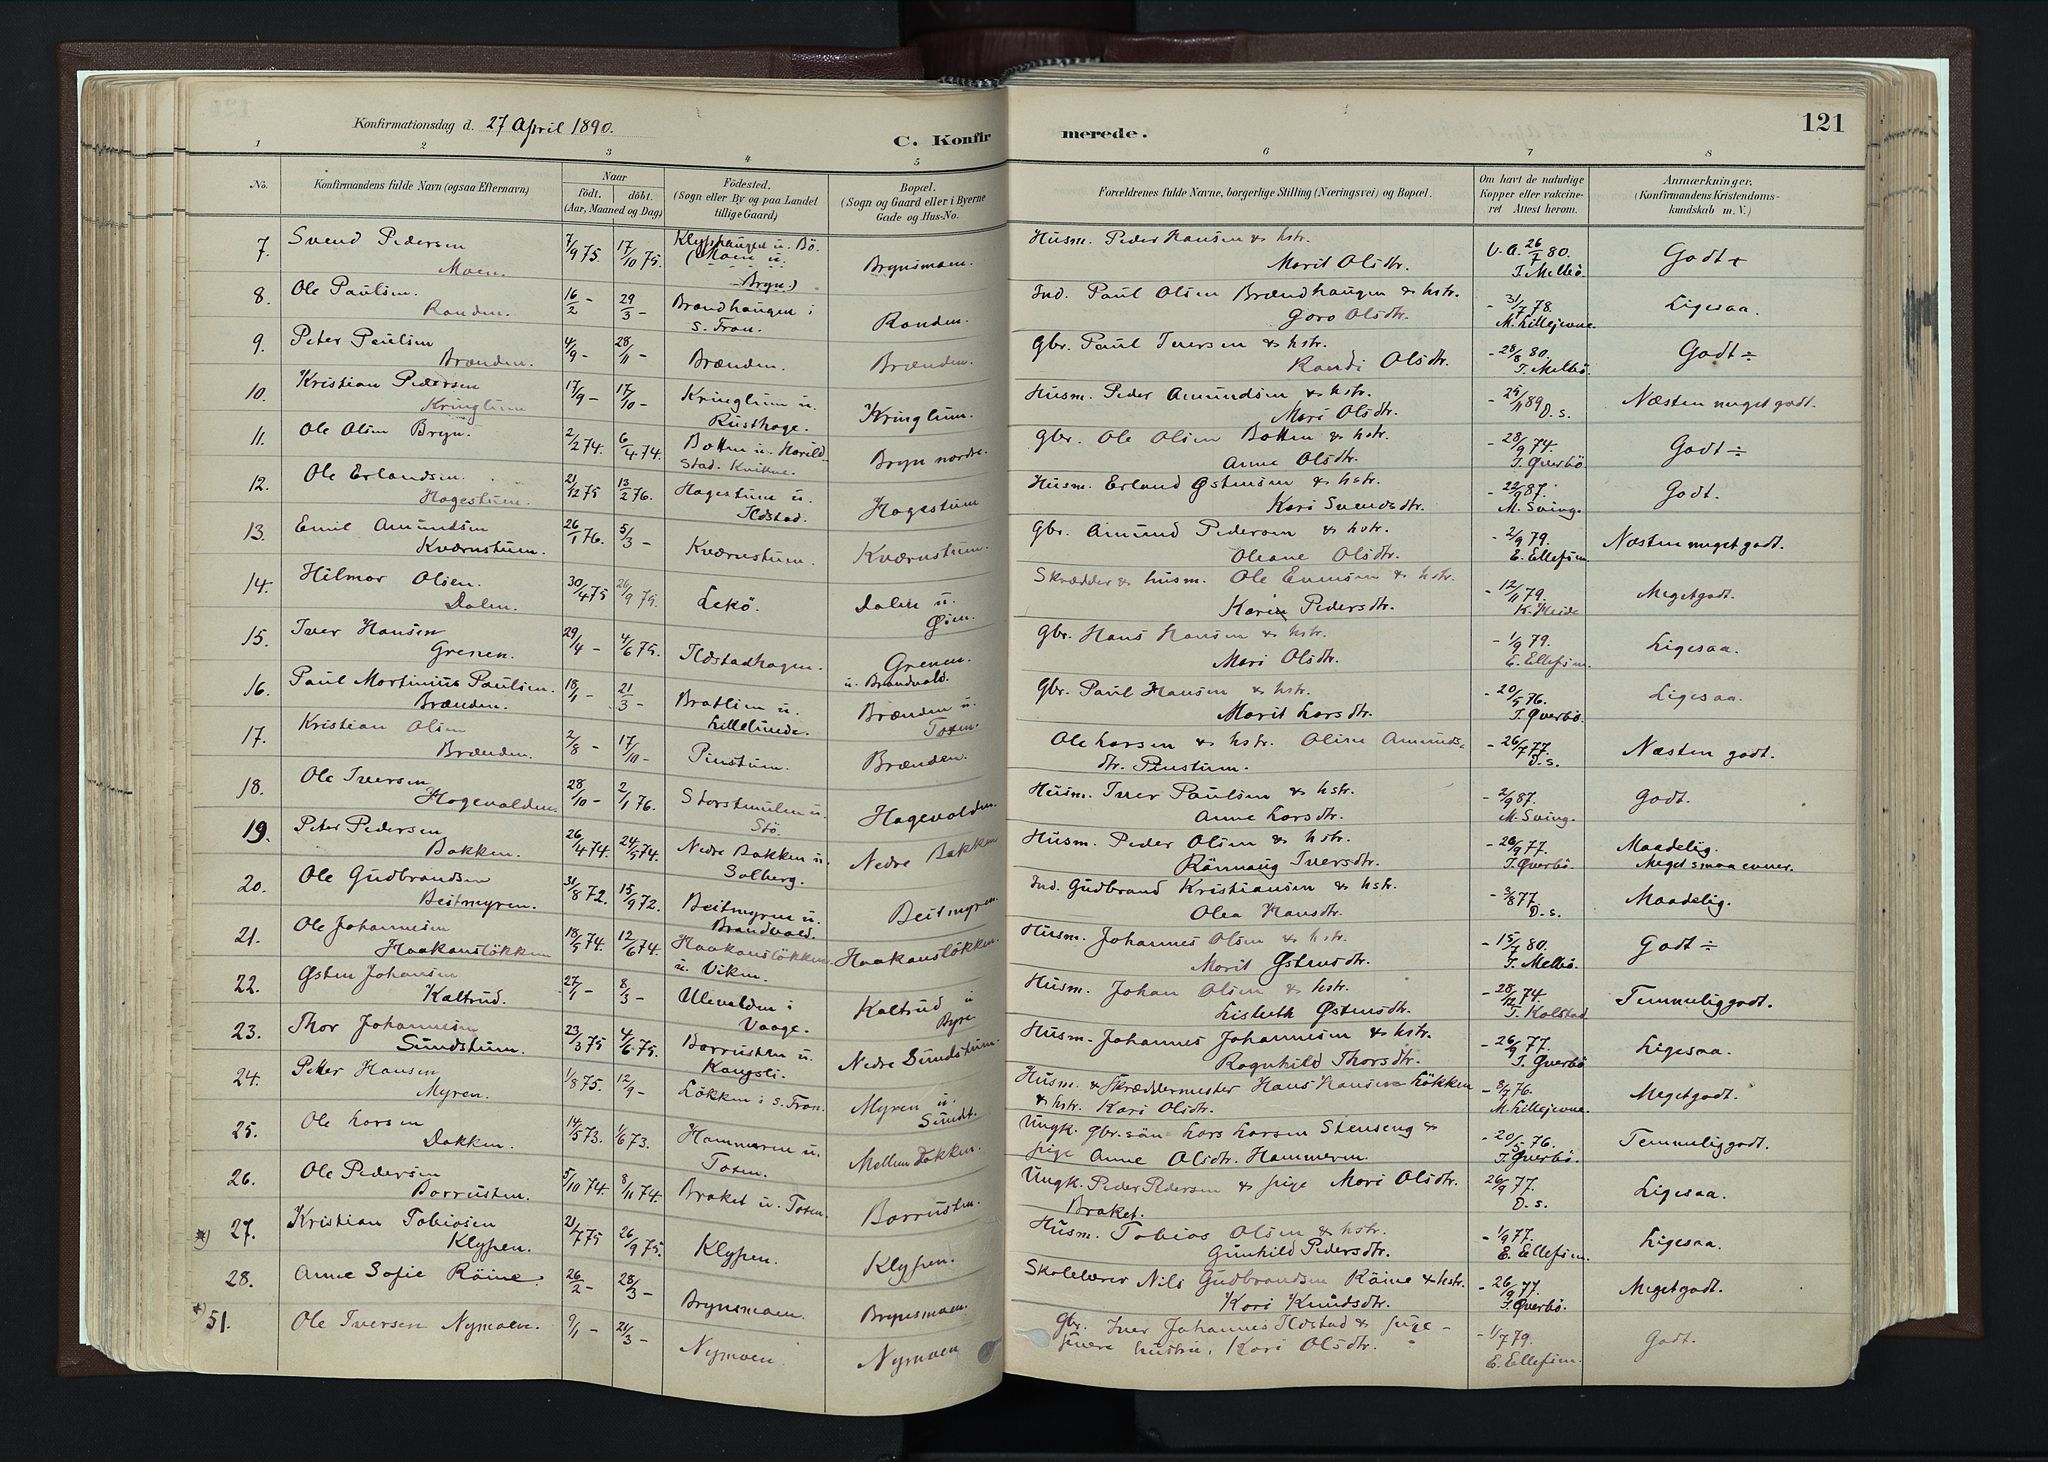 Konfirmationsdag d. 27 April 1890.
C. Konfir
merede.
121
1 2 3 4 5 6 7 8
No.
Konfirmandens fulde Navn (ogsaa Efternavn)
Naar
födt. döbt.
(Aar, Maaned og Dag)
Födested.
(Sogn eller By og paa Landet
tillige Gaard)
Bopæl.
(Sogn og Gaard eller i Byerne
Gade og Hus-No.
Forældrenes fulde Navne, borgerlige Stilling (Næringsvei) og Bopæl.
Om havt de naturlige
Kopper eller vakcine-
ret Attest herom.
Anmærkninger.
(Konfirmandens Kristendoms-
kundskab m. V.)
7. Svend Pedersen 7/9 75. 17/10 75. Klyphaugen u. Bö. Husm. Peder Hansen & hstr. V. A. 26/7 80. Godt +
Moen. (Moen u. Bryn.) Brynsmoen. Marit Olsdtr. T. Melbö.
8. Ole Paulsen. 16/2 - 29/3 - Brændhaugen i Ind. Paul Olsen Brændhaugen & hstr. - 31/7 78. Ligesaa.
Randen. S. Fron. Randen. Goro Olsdtr. M. Lillejevne.
9. Peter Paulsen 4/9 - 28/11 - Gbr. Paul Iversen & hstr. - 28/8 80. Godt ÷
Brænden. Brænden. Brænden. Randi Olsdtr. T. Melbö.
10. Kristian Pedersen 17/9 - 17/10 - Kringlum u. Husm. Peder Amundsen & hstr. - 25/11 89 Næsten meget godt.
Kringlum Rusthage. Kringlum. Mari Olsdtr. D. s.
11. Ole Olsen Bryn. 2/2 74. 6/4 74. Botten u. Harild- Gbr. Ole Olsen Botten & hstr. - 28/9 74. Godt ÷
stad. Kvikne. Bryn nordre. Anne Olsdtr. T. Øverbö.
12. Ole Erlandsen. 21/12 75 13/2 76. Hagestuen u. Husm. Erland Østensen & hstr. - 22/9 87. Godt.
Hagestuen. Ildstad. Hagestuen Kari Svendsdtr. M. Sving.
13. Emil Amundsen 26/1 76. 5/3 - Gbr. Amund Pedersen & hstr. - 2/9 79. Næsten meget godt.
Kværnstuen. Kværnstuen. Kværnstuen. Oleane Olsdtr. E. Ellefsen
14. Hilmar Olsen. 30/4 75 26/9 75. Skrædder & husm. Ole Evensen & hstr. - 12/11 79. Megetgodt.
Dalen. Lekö. Dalen u. Øien. Karen Pedersdtr. K. Heide
15. Iver Hansen 29/4 - 4/6 75. Gbr. Hans Hansen & hstr. - 1/9 79. Ligesaa.
Grenen. Ildstadhagen. Grenen. u. Brandvold. Mari Olsdtr. E. Ellefsen.
16. Paul Martinius Paulsen. 18/1 - 21/3 - Bratlien u. Gbr. Paul Hansen & hstr. - 20/5 76. Ligesaa.
Brænden. Lillelunde. Brænden u. Toxen. Marit Larsdtr. T. Øverbö.
17. Kristian Olsen 2/8 - 17/10 - Ole Larsen & hstr. Oline Amunds- - 26/7 77. Næsten godt.
Brænden. Pinstuen. Brænden. dtr. Pinstuen. D. s.
18. Ole Iversen 28/10 - 2/1 76. Storstenulen u. Husm. Iver Paulsen & hstr. - 2/9 87. Godt.
Hagevolden. Stö. Hagevolden. Anne Larsdtr. M. Sving.
19. Peter Pedersen 26/4 74. 24/5 74. Nedre Bakken u. Husm. Peder Olsen & hstr. - 26/9 77. Maadelig.
Bakken. Solberg. Nedre Bakken Rönnaug Iversdtr. T. Øverbö. Meget smaa evner.
20. Ole Gudbrandsen 31/8 72. 15/9 72. Beitmyren u. Ind. Gudbrand Kristiansen & hstr. - 3/8 77. Maadelig.
Beitmyren. Brandvold. Beitmyren. Olea Hansdtr. D. s.
21. Ole Johannesen 18/5 74. 12/6 74. Haakansløkken. Husm. Johannes Olsen & hstr. - 15/7 80. Godt ÷
Haakansløkken u. Viken. Haakansløkken. Marit Østensdtr. T. Melbö.
22. Østen Johansen 27/1 - 8/3 - Ulevolden i Husm. Johan Olsen & hstr. - 28/12 74. Temmeliggodt.
Kaltrud. Vaage. Kaltrud u Byre Lisbeth Østensdtr. T. Kolstad
23. Thor Johannesen 23/3 75 4/6 75. Borrusten u. Husm. Johannes Johannesen & hstr. - 26/9 77. Ligesaa.
Sundstuen. Kongsli. Nedre Sundstuen. Ragnhild Thorsdtr. T. Øverbö
24. Petter Hansen 1/8 75. 12/9 - Husm. & Skræddermester Hans Hansen Lökken - 8/7 76. Megetgodt.
Myren. Lökken i S. Fron. Myren u. Sundt. & hstr. Kari Olsdtr. M. Lillejevne.
25. Ole Larsen 14/5 73. 1/6 73. Hammeren u. Ungk. gbr.sön Lars Larsen Stenseng & - 20/5 76. Temmeliggodt.
Dokken. Toxen. Mellem Dokken. pige Anne Olsdtr. Hammeren. T. Øverbö.
26. Ole Pedersen 5/10 74. 8/11 74. Ungk. Peder Pedersen & pige Mari Olsdtr. 26/9 77. Ligesaa.
Borrusten. Braket u. Toxen. Borrusten. Braket. D. s.
27. Kristian Tobiasen 21/7 75 26/9 75. Husm. Tobias Olsen & hstr. - 1/9 77. Ligesaa.
Klypen. Klypen. Klypen. Gunhild Pedersdtr. E. Ellefsen.
28. Anne Sofie Röine. 26/2 - 28/3 - Skolelærer Nils Gudbrandsen Röine & hstr. - 26/9 77. Megetgodt.
Brynsmoen. Brynsmoen. Kari Knudsdtr. T. Øverbö.
51. Ole Iversen Nymoen. 9/1 - 21/3 - Gbr. Iver Johannes Ildstad & pige - - 1/7 79. Godt.
Nymoen. Nymoen hustru, Kari Olsdtr. E. Ellefsen.